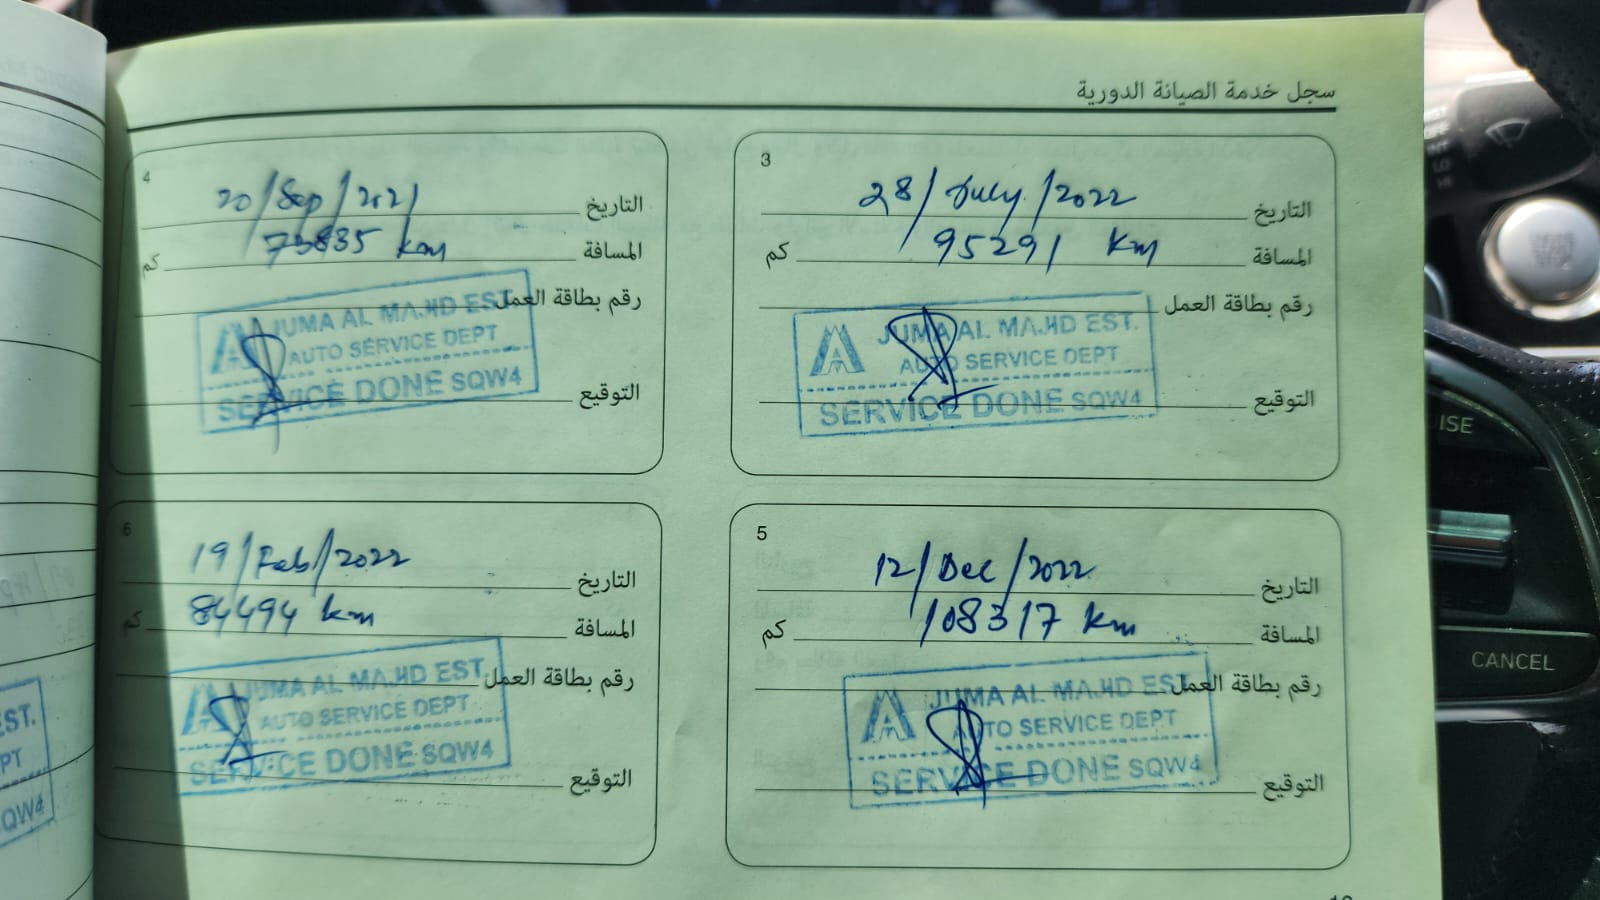 سجل خدمة الصيانة الدورية
3
التاريخ 28/July/2022
المسافة 95291 Km كم
رقم بطاقة العمل
JUMA AL MAJID EST.
AUTO SERVICE DEPT
SERVICE DONE SQW4
التوقيع
4
التاريخ 20/Sep/2021
المسافة 73835 km كم
رقم بطاقة العمل
JUMA AL MAJID EST.
AUTO SERVICE DEPT
SERVICE DONE SQW4
التوقيع
5
التاريخ 12/Dec/2022
المسافة 108317 Km كم
رقم بطاقة العمل
JUMA AL MAJID EST.
AUTO SERVICE DEPT
SERVICE DONE SQW4
التوقيع
6
التاريخ 19/Feb/2022
المسافة 84494 km كم
رقم بطاقة العمل
JUMA AL MAJID EST.
AUTO SERVICE DEPT
SERVICE DONE SQW4
التوقيع
EST.
PT
QW4
CANCEL